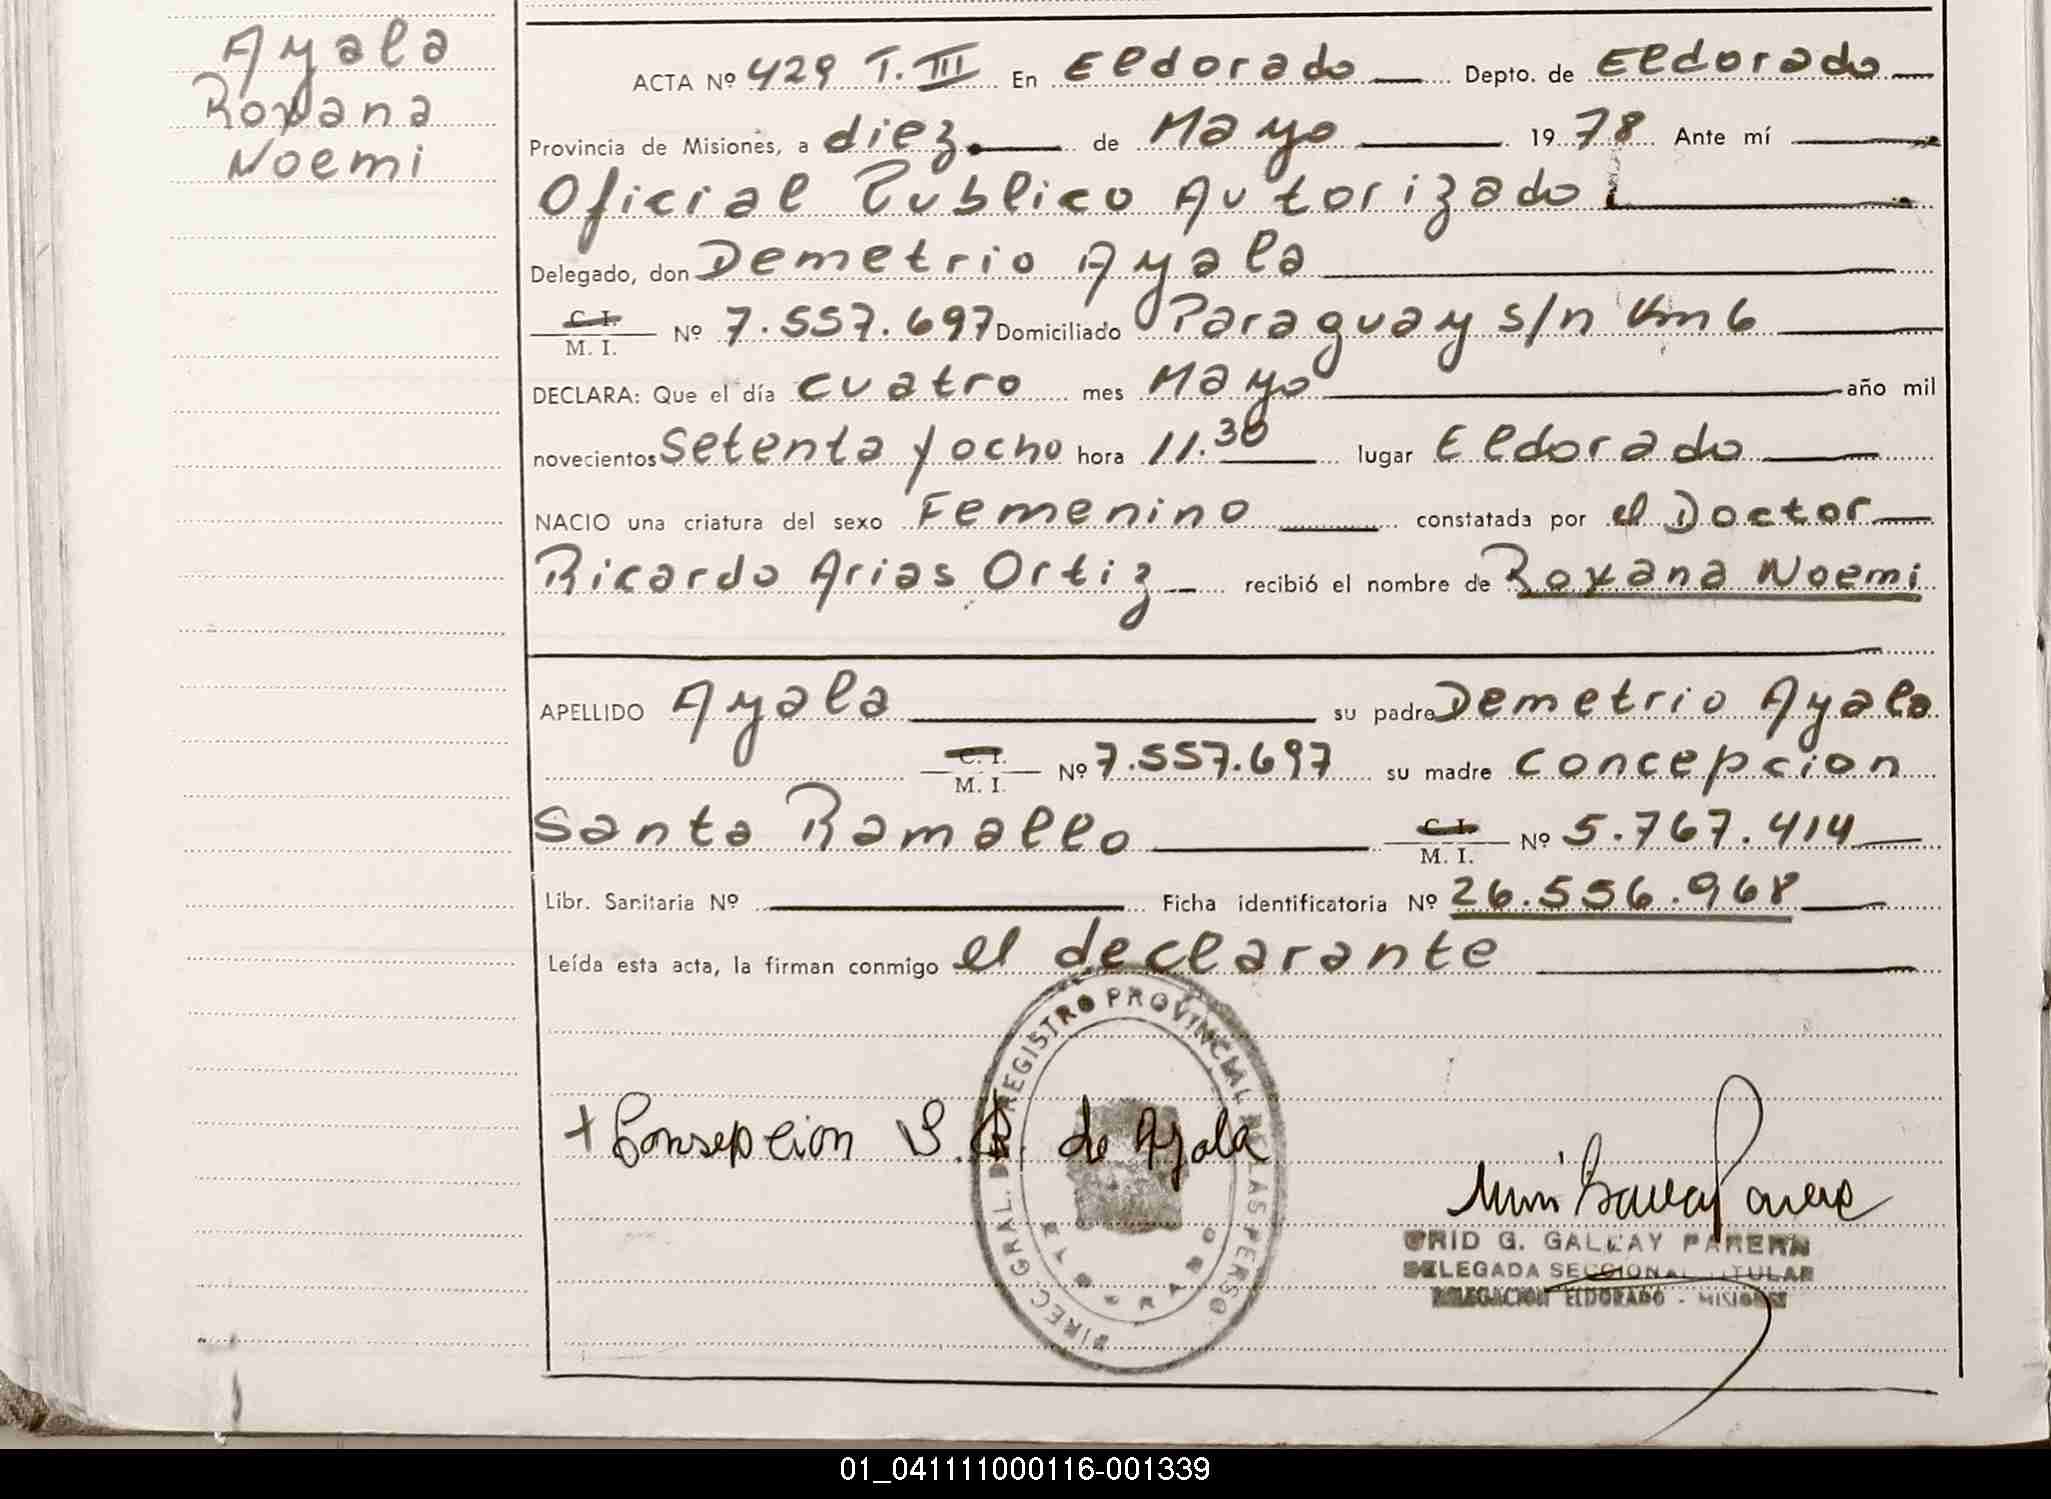 Ayala
Roxana
Noemi
ACTA Nº 429 T. III En Eldorado Depto. de Eldorado
Provincia de Misiones, a diez de Mayo 1978 Ante mí
Oficial Publico Autorizado
Delegado, don Demetrio Ayala
C. I.
M. I. Nº 7.557.697 Domiciliado Paraguay s/n Km 6
DECLARA: Que el día cuatro mes Mayo año mil
novecientos setenta y ocho hora 11.30 lugar Eldorado
NACIO una criatura del sexo Femenino constatada por el Doctor
Ricardo Arias Ortiz recibió el nombre de Roxana Noemi
APELLIDO Ayala su padre Demetrio Ayala
C. I.
M. I. Nº 7.557.697 su madre Concepcion
Santa Ramallo C. I.
M. I. Nº 5.767.414
Libr. Sanitaria Nº Ficha identificatoria Nº 26.556.968
Leída esta acta, la firman conmigo el declarante
DIREC. GRAL. DE REGISTRO PROVINCIAL DE LAS PERSO
ELDORADO
+ Consepcion S. R. de Ayala
G. GALLAY PARERA
DELEGADA SECCIONAL TITULAR
DELEGACION ELDORADO - MISIONES
01_041111000116-001339